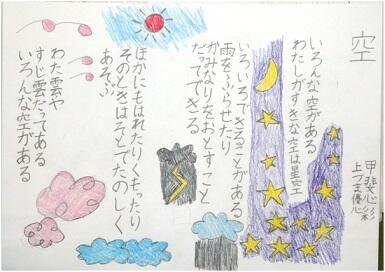 空
甲斐心絆
上づま優心
いろんな空がある
わたしがすきな空は星空
いろいろできることがある
雨をふらせたり
かみなりをおとすこと
だってできる
ほかにもはれたりくもったり
そのときはそとでたのしく
あそぶ
わた雲や
すじ雲だってある
いろんな空がある